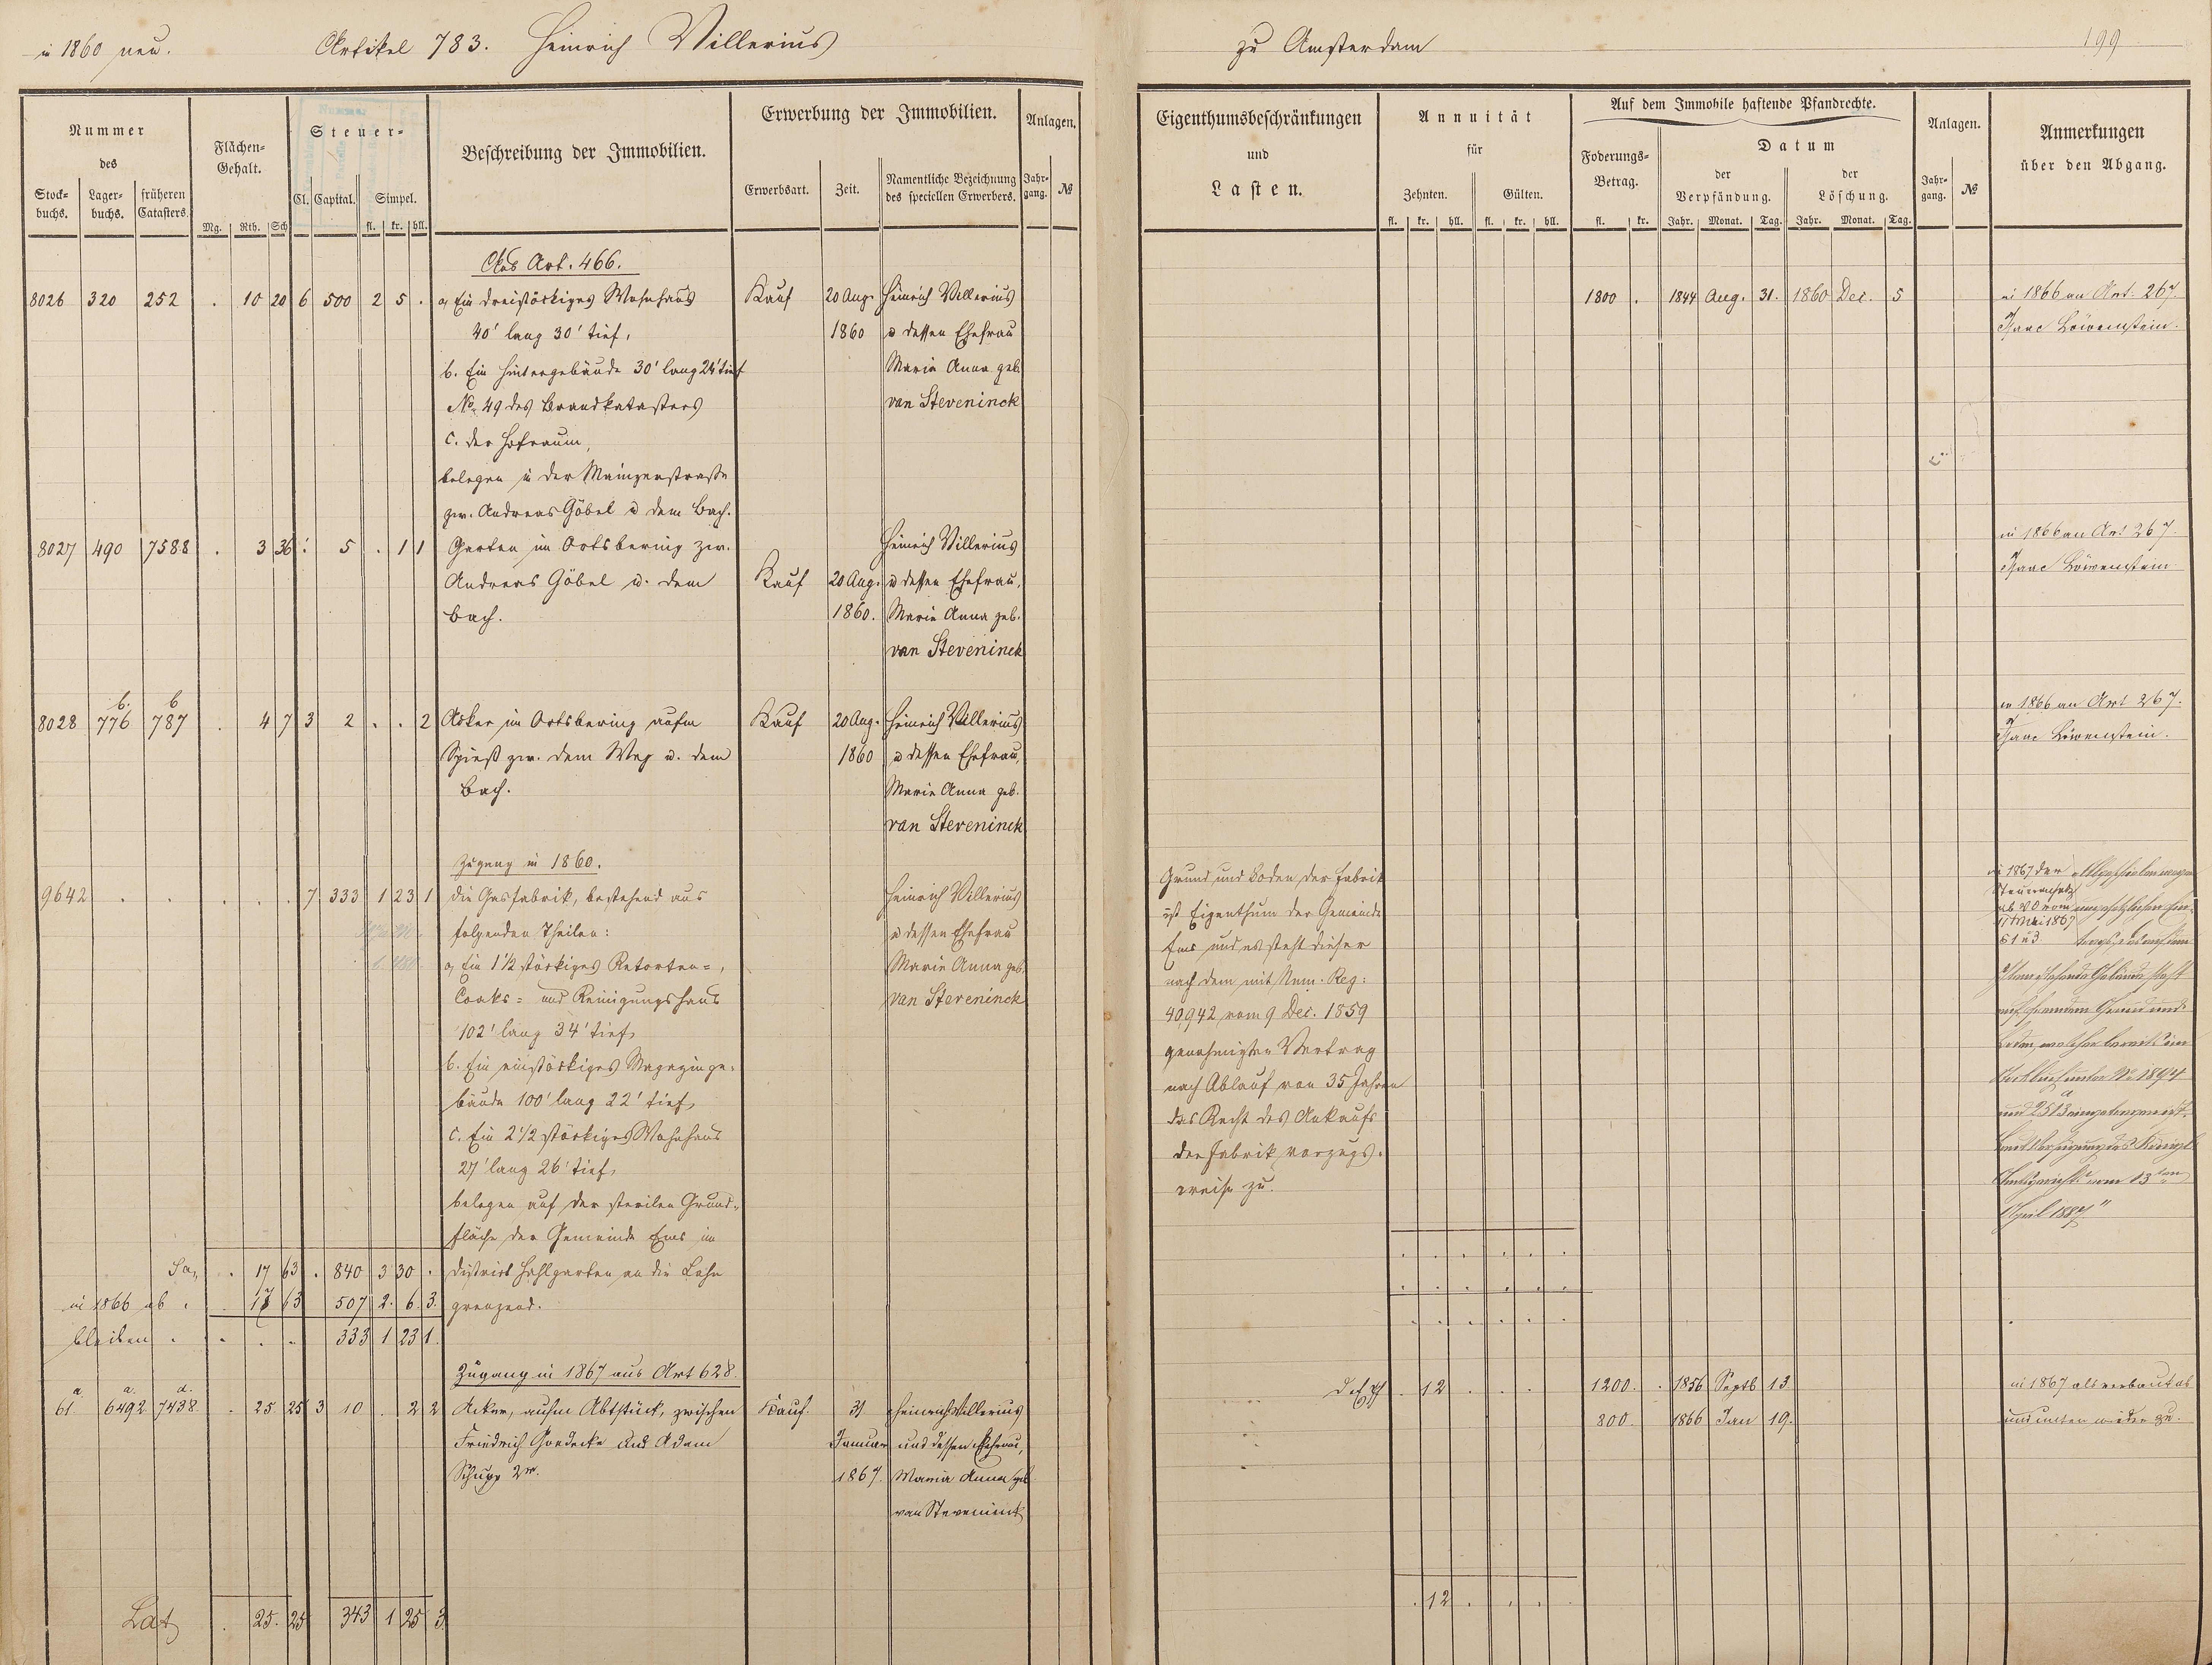 in 1860 neu.
Artikel 783. Heinrich Villerius
zu Amsterdam
199
Nummer
des
Stock-
buchs.
Lager-
buchs.
früheren
Catasters.
Flächen-
Gehalt.
Mg. Rth. Sch
Steuer-
Cl. Capital. Simpel.
fl. kr. hll.
Beschreibung der Immobilien.
Erwerbung der Immobilien.
Erwerbsart. Zeit.
Namentliche Bezeichnung
des speciellen Erwerbers.
Anlagen.
Jahr-
gang. №
Eigenthumsbeschränkungen
und
Lasten.
Annuität
für
Zehnten. Gülten.
fl. kr. hll. fl. kr. hll.
Auf dem Immobile haftende Pfandrechte.
Foderungs-
Betrag.
fl. kr.
Datum
der
Verpfändung.
Jahr. Monat. Tag.
der
Löschung.
Jahr. Monat. Tag.
Anlagen.
Jahr-
gang. №
Anmerkungen
über den Abgang.
Aus Art. 466.
8026 320 252 . 10 20 6 500 2 5 . a, Ein dreistöckiges Wohnhaus Kauf 20 Aug. Heinrich Villerius 1800 . 1844 Aug. 31. 1860 Dec. 5 in 1866 an Art. 267.
40' lang 30' tief, 1860 u dessen Ehefrau Isaac Löwenstein.
b. Ein Hintergebäude 30' lang 24' tief Marie Anna geb.
No. 49 des Brandkatasters van Steveninck
c. der Hofraum,
belegen in der Mainzerstraße
zw. Andreas Göbel u dem Bach.
8027 490 7588 . 3 36 : 5 . 1 1 Garten im Ortsbering zw. Heinrich Villerius in 1866 an Art 267.
Andreas Göbel u. dem Kauf 20 Aug. u dessen Ehefrau, Isaac Löwenstein
Bach. 1860. Marie Anna geb.
van Steveninck
b. b
8028 776 787 . 4 7 3 2 . . 2 Acker im Ortsbering aufm Kauf 20 Aug. Heinrich Villerius in 1866 an Art 267.
Spieß zw. dem Weg u. dem 1860 u dessen Ehefrau, Isaac Löwenstein.
Bach. Marie Anna geb.
van Steveninck
Zugang in 1860.
9642 . . . . . 7 333 1 23 1 die Gasfabrik, bestehend aus Heinrich Villerius
folgenden Theilen: u dessen Ehefrau
a, Ein 1 1/2 stöckiges Retorten=, Marie Anna geb.
Coaks= und Reinigungshaus van Steveninck
102' lang 34' tief,
b. Ein einstöckiges Magazinge-
bäude 100' lang 22' tief,
c. Ein 2 1/2 stöckiges Wohnhaus
27' lang 26' tief,
belegen auf der sterilen Grund-
fläche der Gemeinde Ems im
District Hahlgarten an die Lahn
grenzend.
Grund und Boden der Fabrik
ist Eigenthum der Gemeinde
Ems und es steht dieser
nach dem mit Num. Reg:
40,942 vom 9 Dec. 1859
genehmigten Vertrag
nach Ablauf von 35 Jahren
das Recht des Ankaufs
der Fabrik vorzugs-
weise zu.
in 1867 der
Steueransatz
ab V O vom
11 Mai 1867
§ 1 u 3
auf fremdem Grund und
Boden, welcher bereits im
Stockbuch unter No 1894
und 2513 eingetragen ist.
Amtsgerichts vom 13ten
April 1887"
Sa, . 17 63 . 840 3 30 .
in 1866 ab . 17 63 507 2. 6. 3.
bleiben . . . . 333 1 23 1.
Zugang in 1867 aus Art 628.
a a. d.
61 6492 7438 . 25 25 3 10 . 2 2 Acker, aufm Abtstück, zwischen Kauf. 31 Heinrich Villerius . 12 . . . . 1200. . 1856 Septb 13 in 1867 als verbaut ab
Friedrich Goedecke und Adam Januar und dessen Ehefrau, 800. 1866 Jan 19. und unten wieder zu.
Schupp 2r. 1867. Maria Anna geb.
van Stevenink
. 12 . . . .
Lat . 25. 25 343 1 25 3